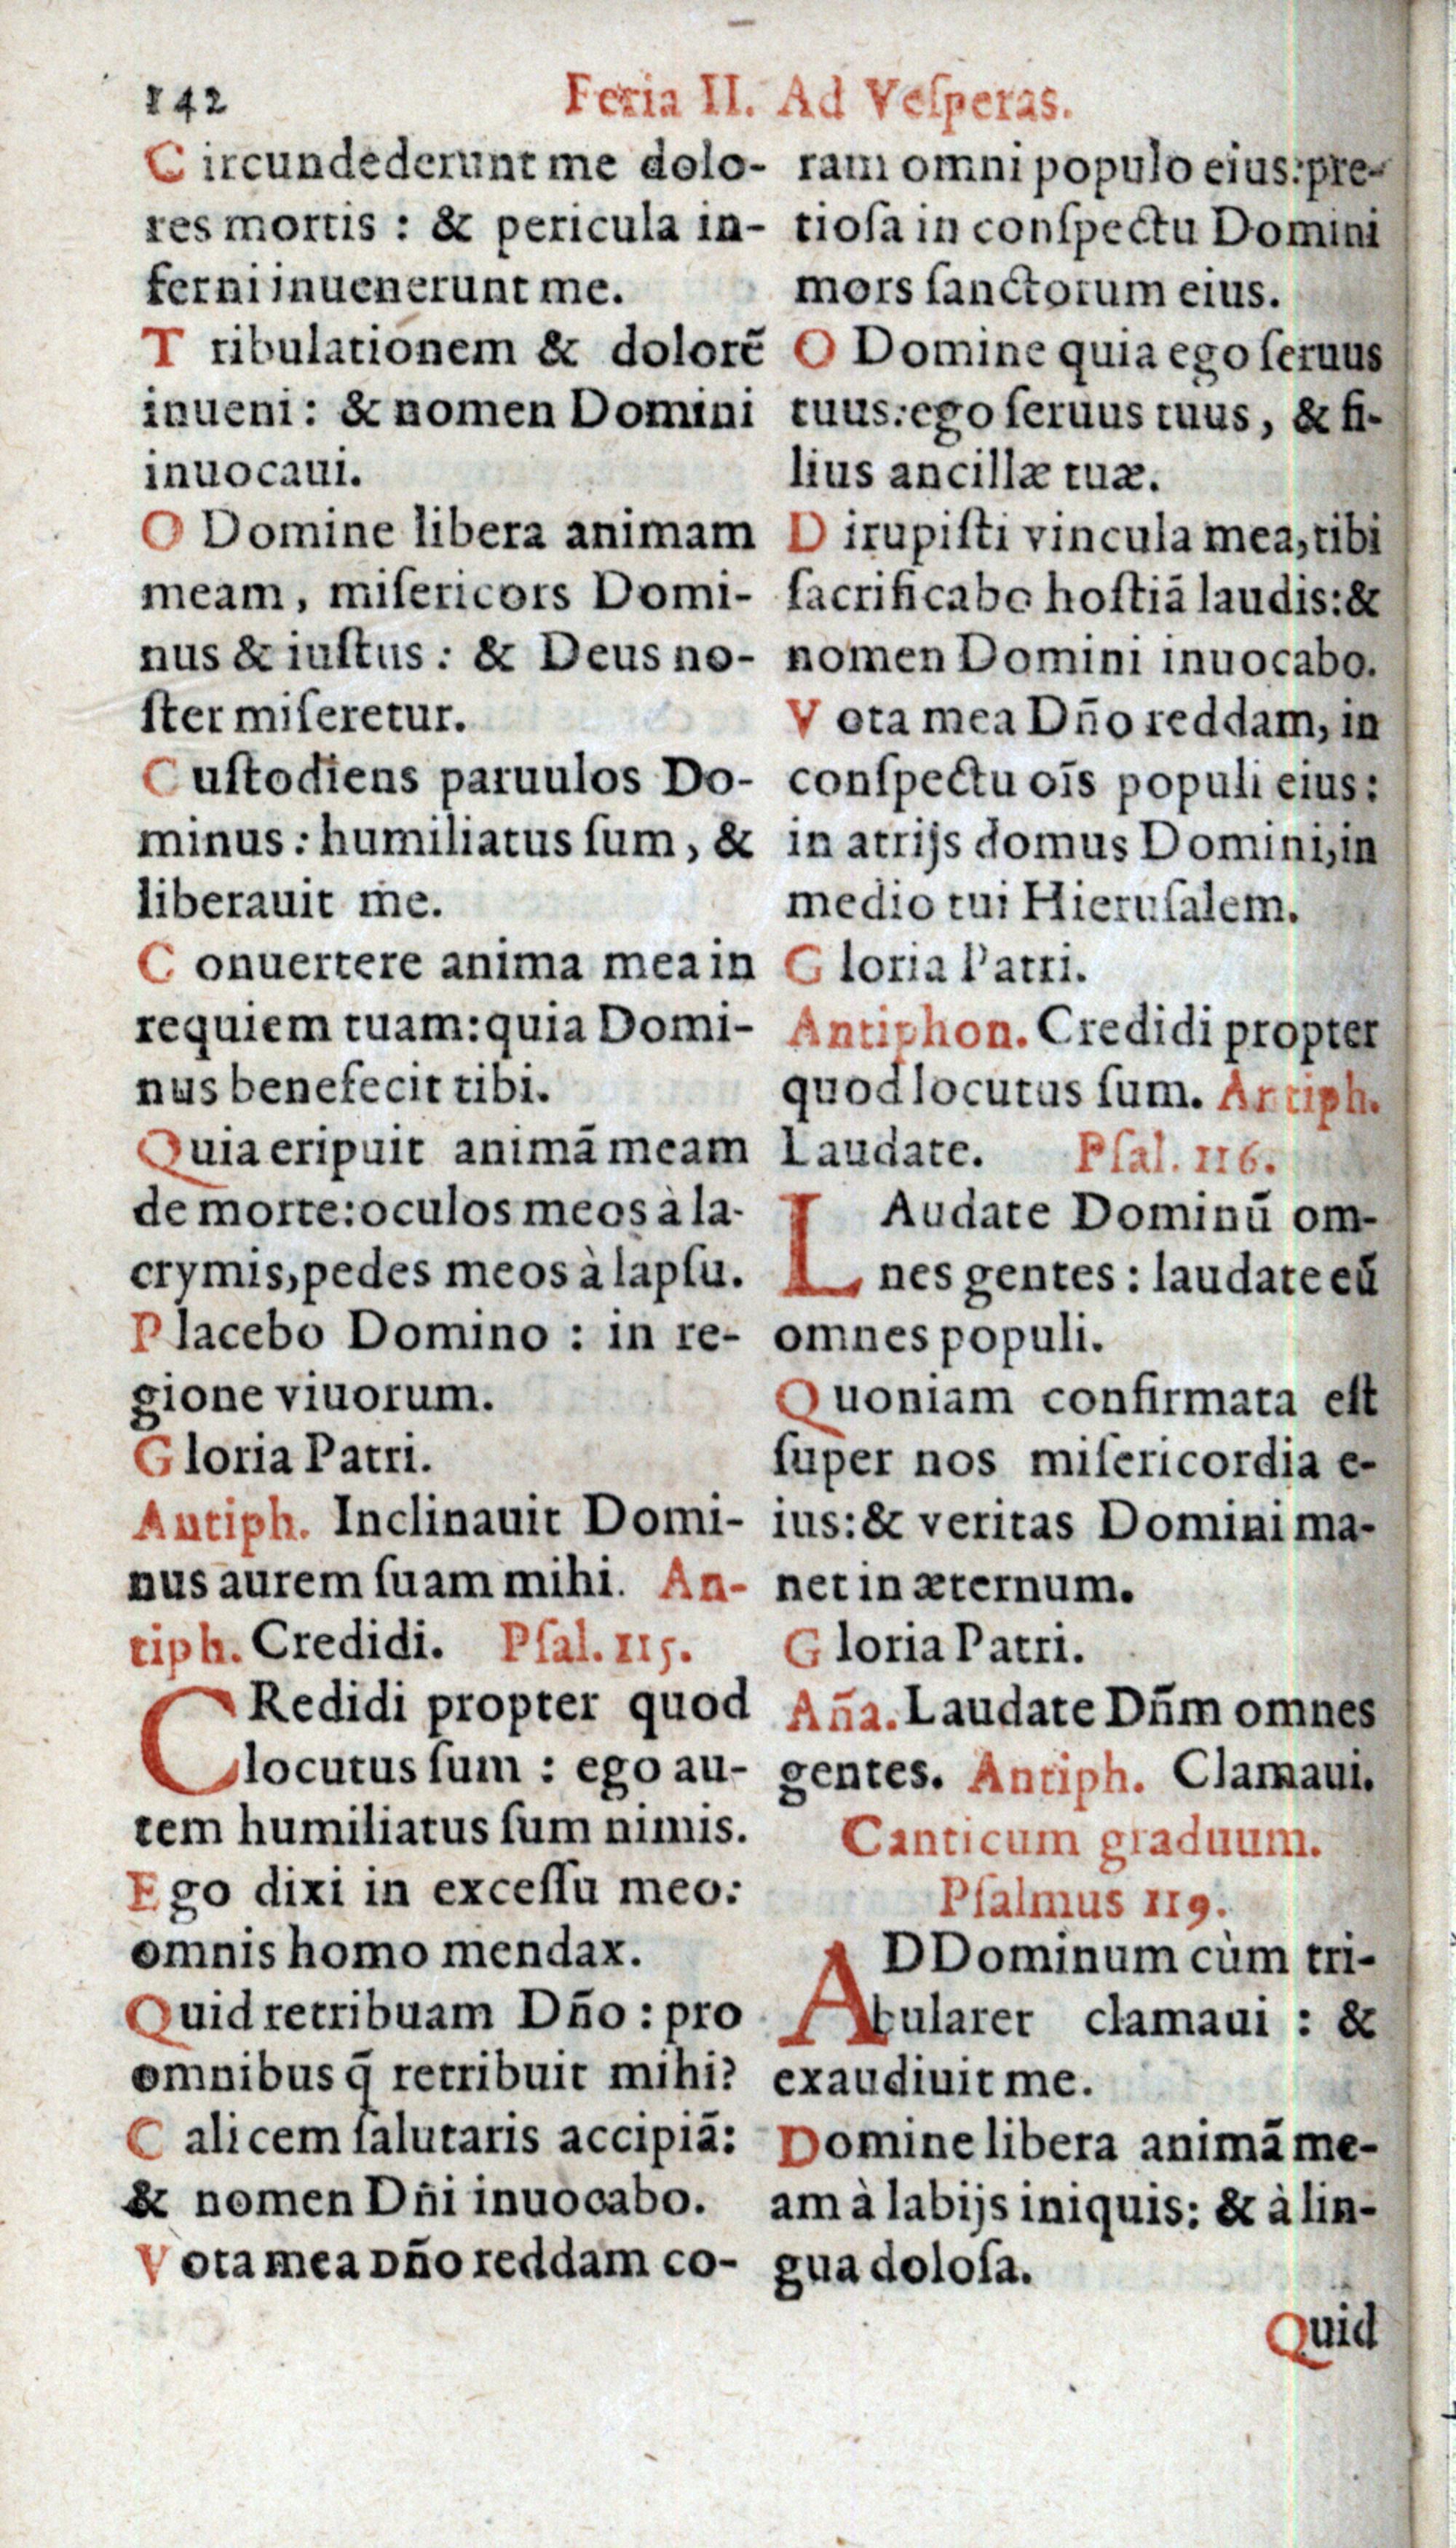 142 Feria II. Ad Veſperas.
Circundederunt me dolo-
res mortis : & pericula in-
ferni inuenerunt me.
Tribulationem & dolorē
inueni: & nomen Domini
inuocaui.
O Domine libera animam
meam, miſericors Domi-
nus & iuſtus : & Deus no-
ſter miſeretur.
Cuſtodiens paruulos Do-
minus : humiliatus ſum, &
liberauit me.
Conuertere anima mea in
requiem tuam: quia Domi-
nus benefecit tibi.
Quia eripuit animā meam
de morte: oculos meos à la-
crymis, pedes meos à lapſu.
Placebo Domino : in re-
gione viuorum.
Gloria Patri.
Antiph. Inclinauit Domi-
nus aurem ſuam mihi. An-
tiph. Credidi. Pſal. 115.
CRedidi propter quod
locutus ſum : ego au-
tem humiliatus ſum nimis.
Ego dixi in exceſſu meo:
omnis homo mendax.
Quid retribuam Dño : pro
omnibus q̄ retribuit mihi?
Calicem ſalutaris accipiā:
& nomen Dñi inuocabo.
Vota mea Dño reddam co-
ram omni populo eius: pre-
tioſa in conſpectu Domini
mors ſanctorum eius.
O Domine quia ego ſeruus
tuus: ego ſeruus tuus, & fi-
lius ancillæ tuæ.
Dirupiſti vincula mea, tibi
ſacrificabo hoſtiā laudis: &
nomen Domini inuocabo.
Vota mea Dño reddam, in
conſpectu oīs populi eius:
in atrijs domus Domini, in
medio tui Hieruſalem.
Gloria Patri.
Antiphon. Credidi propter
quod locutus ſum. Antiph.
Laudate. Pſal. 116.
LAudate Dominū om-
nes gentes : laudate eū
omnes populi.
Quoniam confirmata eſt
ſuper nos miſericordia e-
ius: & veritas Domini ma-
net in æternum.
Gloria Patri.
Aña. Laudate Dñm omnes
gentes. Antiph. Clamaui.
Canticum graduum.
Pſalmus 119.
AD Dominum cùm tri-
bularer clamaui : &
exaudiuit me.
Domine libera animā me-
am à labijs iniquis: & à lin-
gua doloſa.
Quid